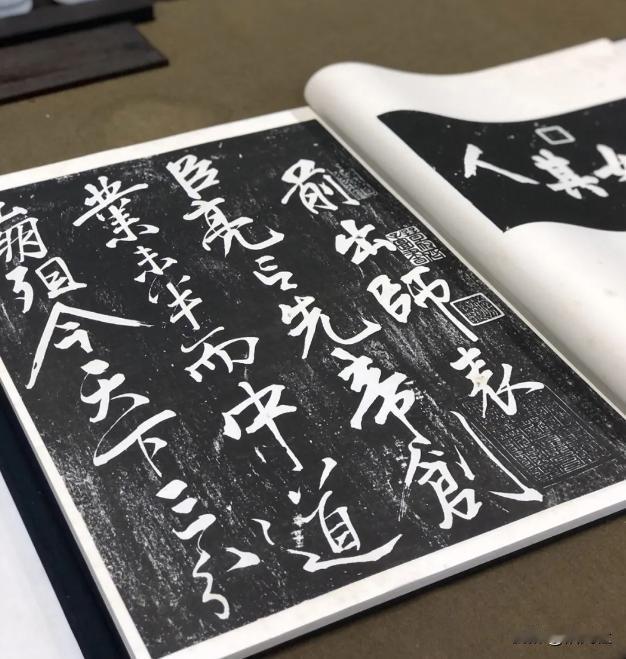 其人
前出師表
臣亮言先帝創
業未半而中道
崩殂今天下三分